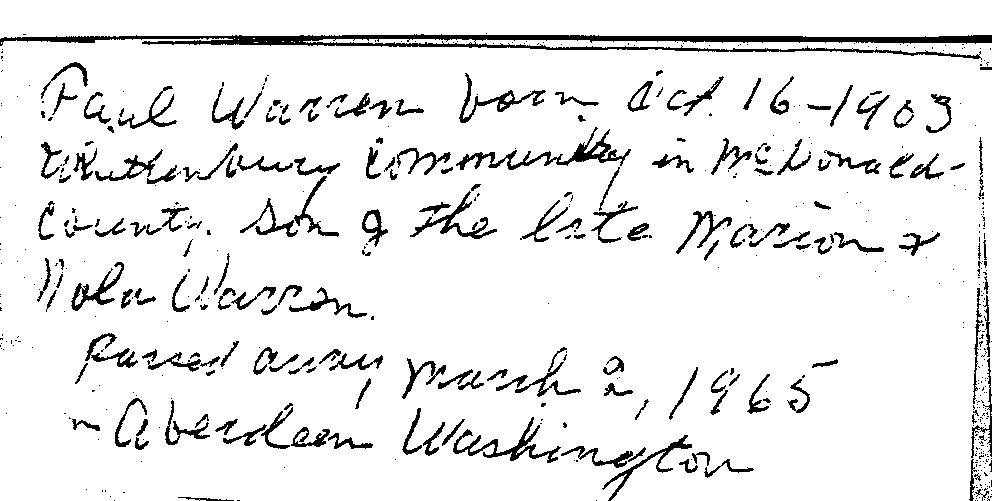 Paul Warren born Oct. 16-1903
Whittenbury Community in McDonald-
County. Son of the late Marion &
Nola Warren.
Passed away March 2, 1965
in Aberdeen Washington